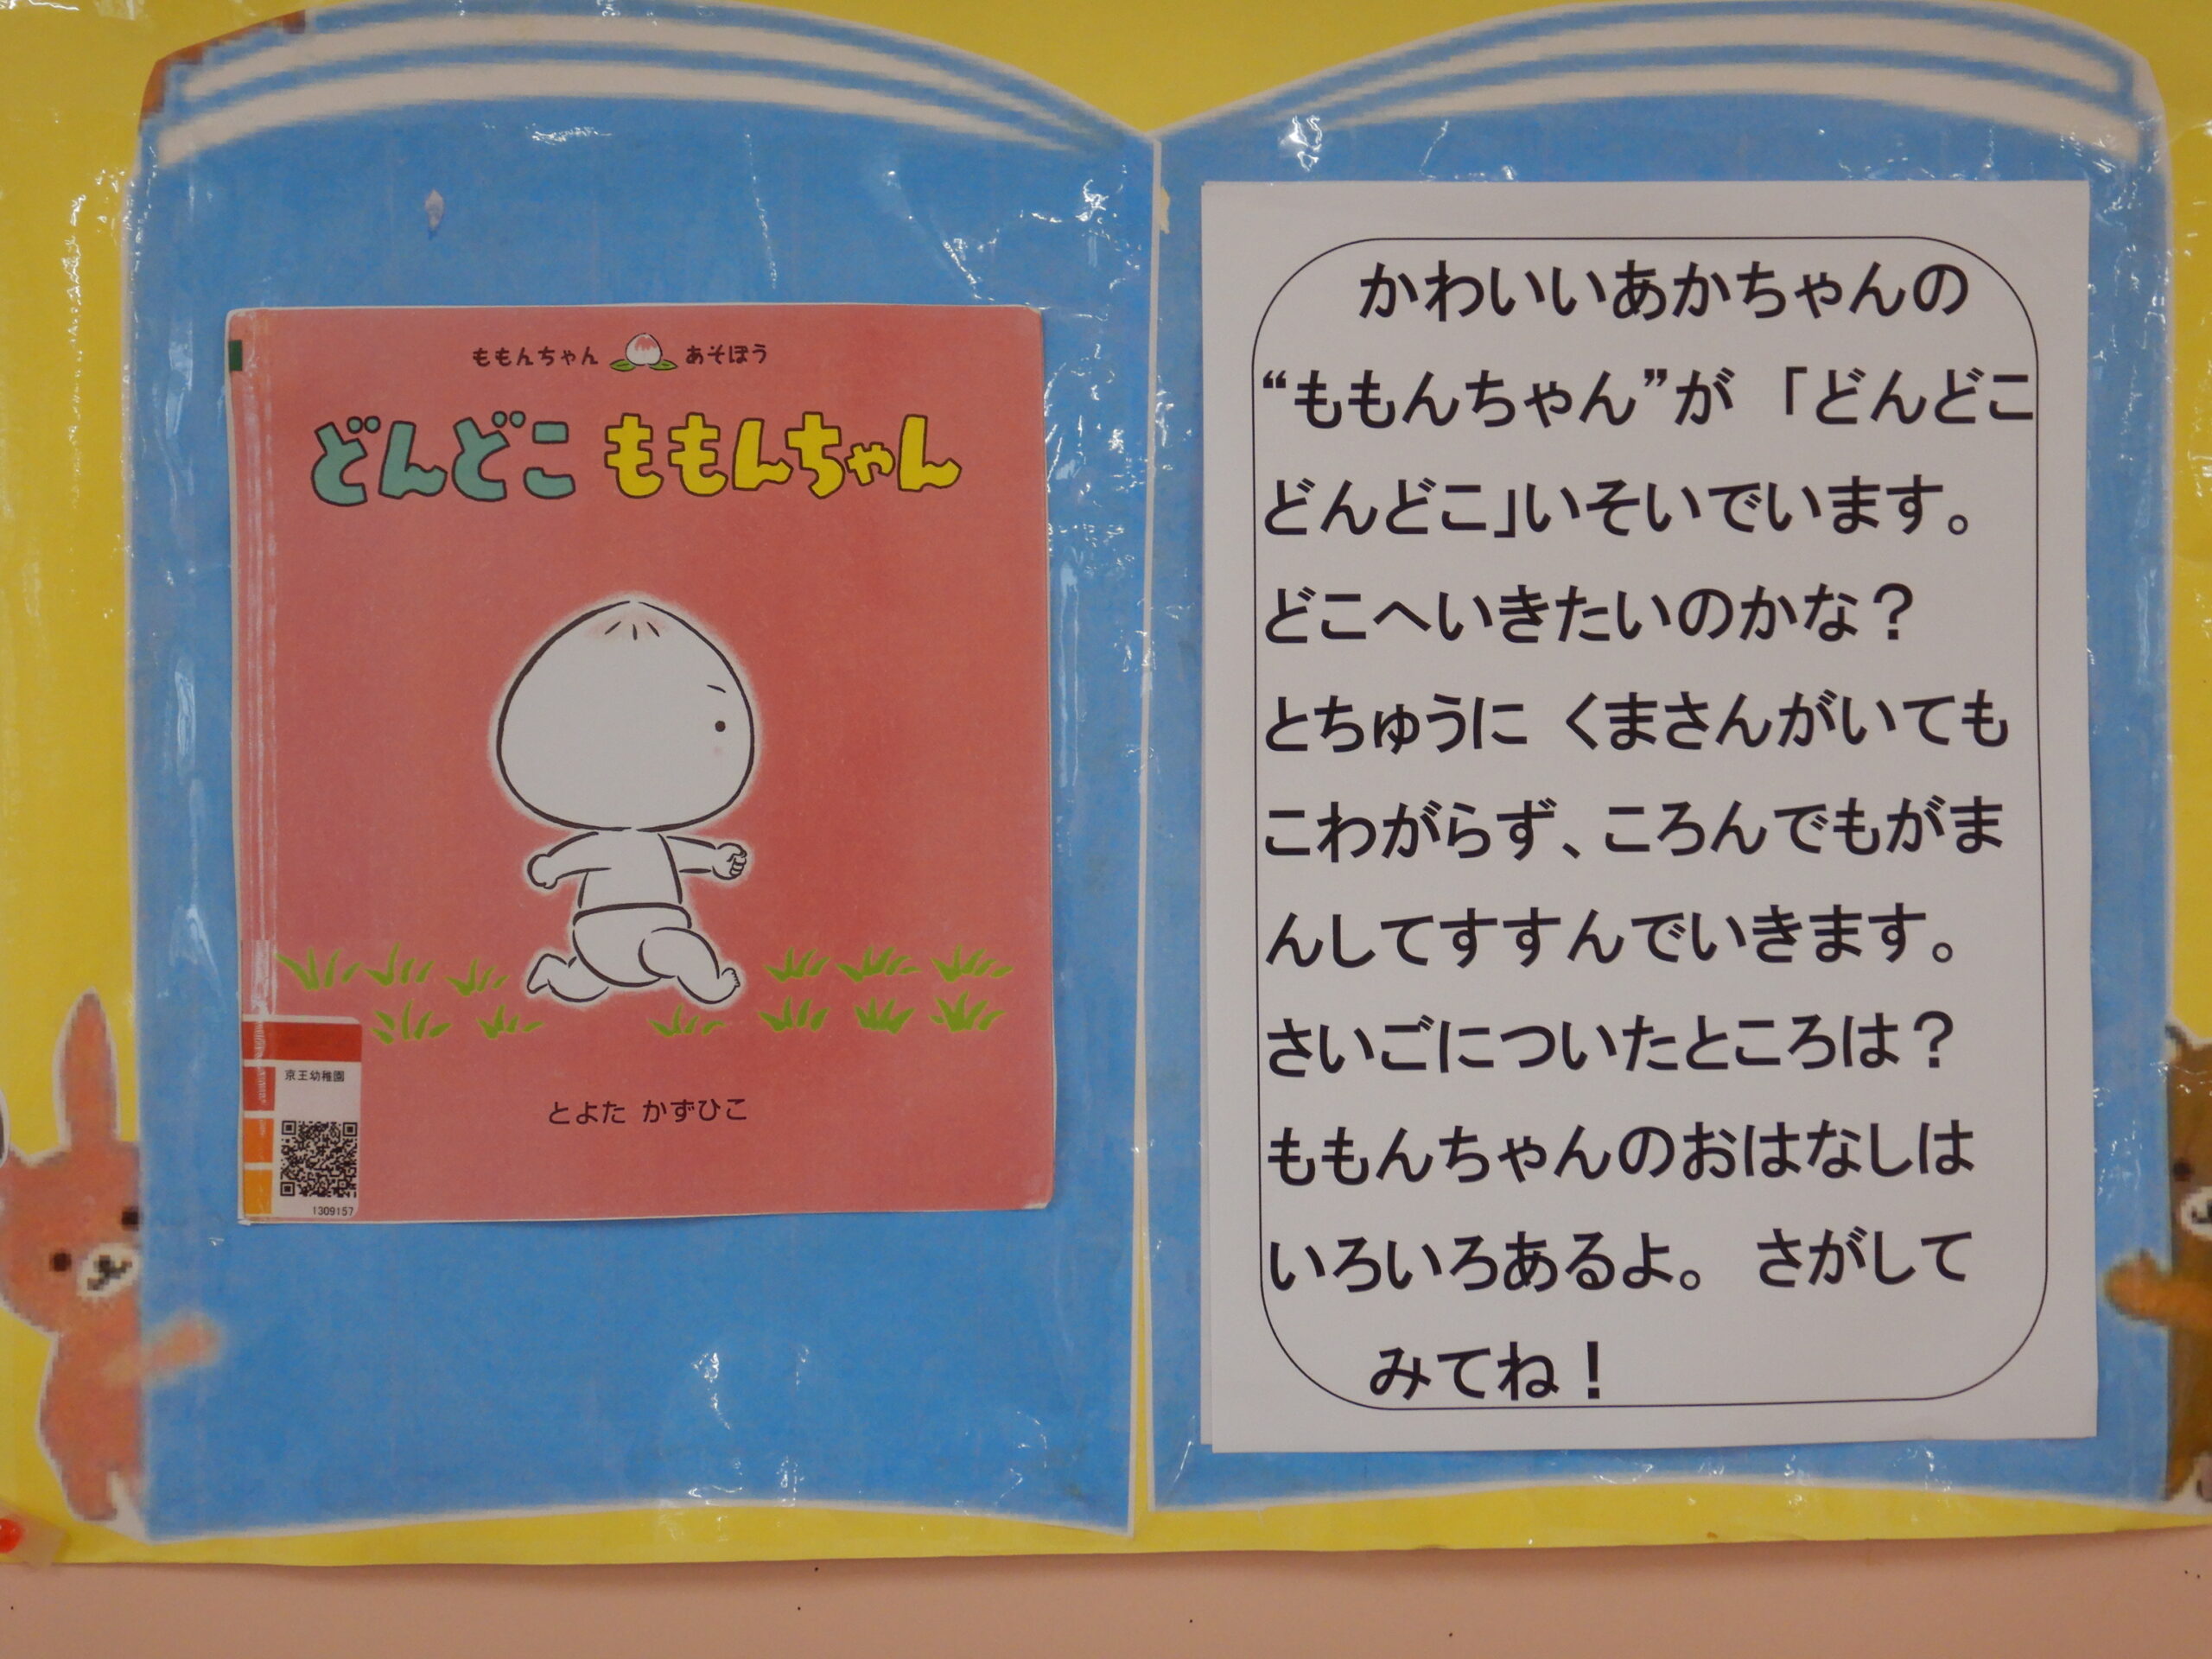 ももんちゃん あそぼう
どんどこ ももんちゃん
京王幼稚園
1309157
とよた かずひこ
かわいいあかちゃんの
“ももんちゃん”が 「どんどこ
どんどこ」いそいでいます。
どこへいきたいのかな？
とちゅうに くまさんがいても
こわがらず、ころんでもがま
んしてすすんでいきます。
さいごについたところは？
ももんちゃんのおはなしは
いろいろあるよ。 さがして
みてね！